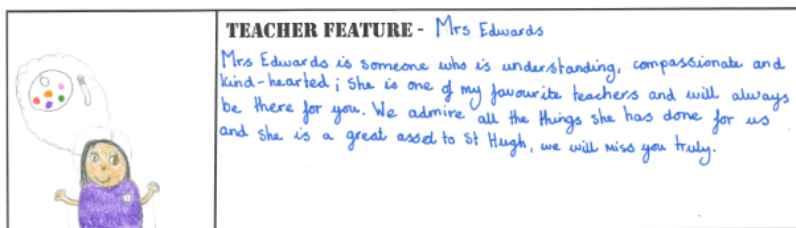 TEACHER FEATURE - Mrs Edwards
Mrs Edwards is someone who is understanding, compassionate and
kind-hearted; She is one of my favourite teachers and will always
be there for you. We admire all the things she has done for us
and she is a great asset to St Hugh, we will miss you truly.